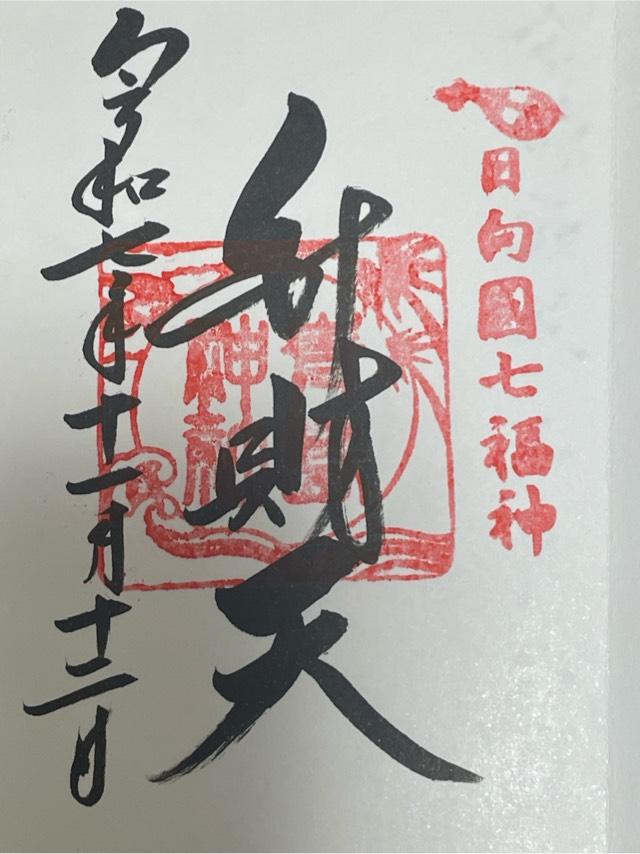 日向國七福神
弁財天
青島
神社
令和七年十一月十二日